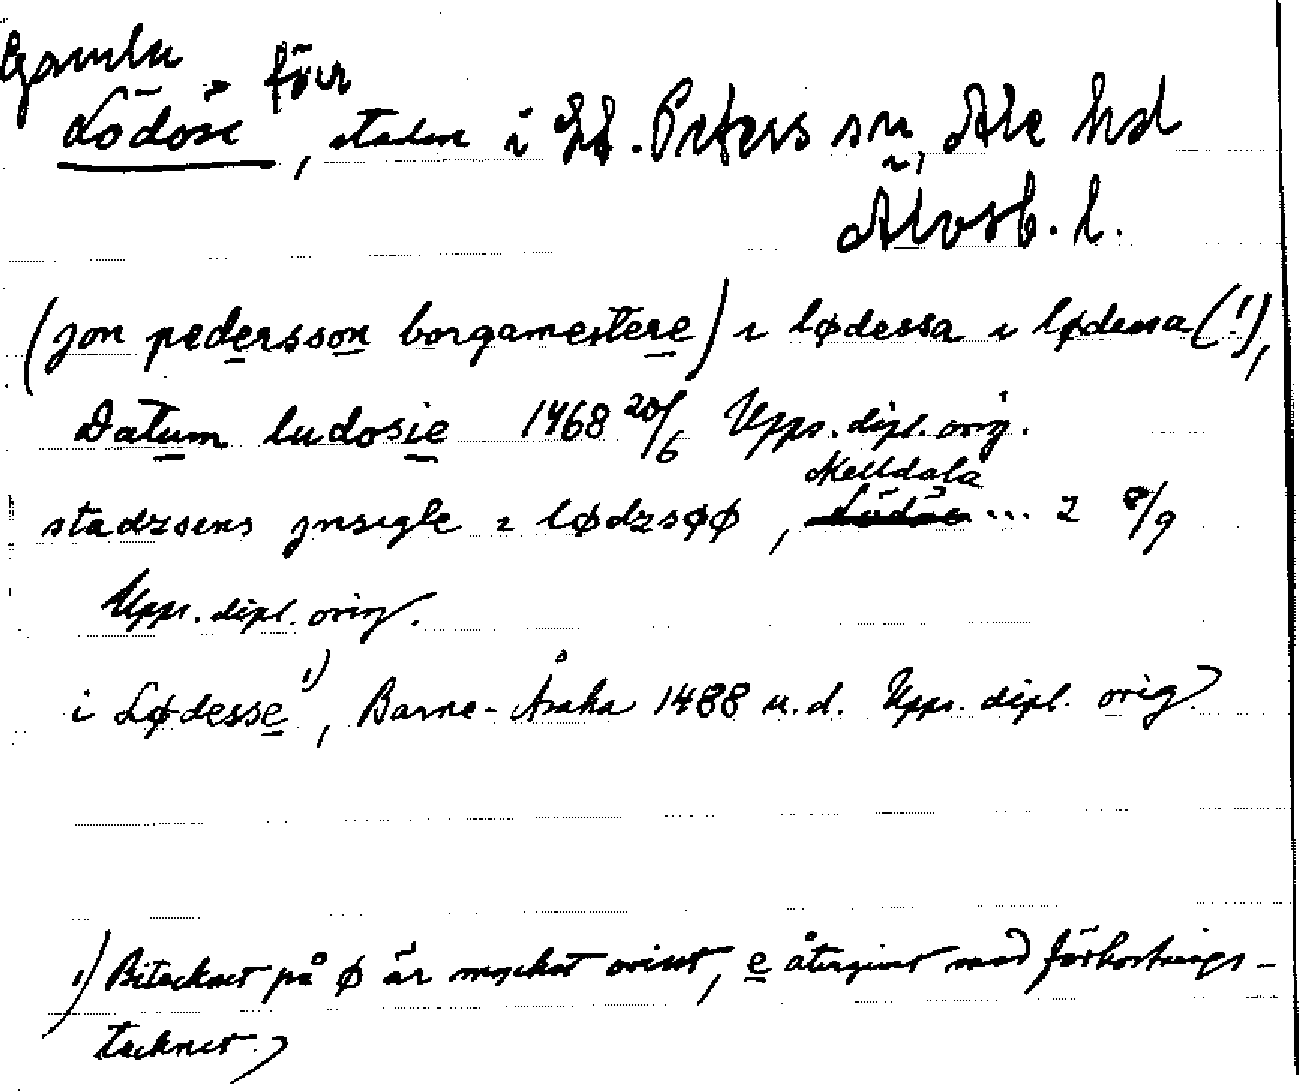 Gamla
Lödöse, förr staden i St. Peters sn, Ale hd
Älvsb. l.
(jon pedersson borgamestere) i lødessa i lødessa (!),
Datum ludosie 1468 20/6 Upps. dipl. orig.
stadzsens jnsigle i lødzsøø, Melldala ... 2 8/9
Upps. dipl. orig.
i Lødesse 1), Barne-Åsaka 1488 u.d. Upps. dipl. orig.
1) Bitecknet på ø är mycket svirr, e återgivet med förkortnings-
tecknet.